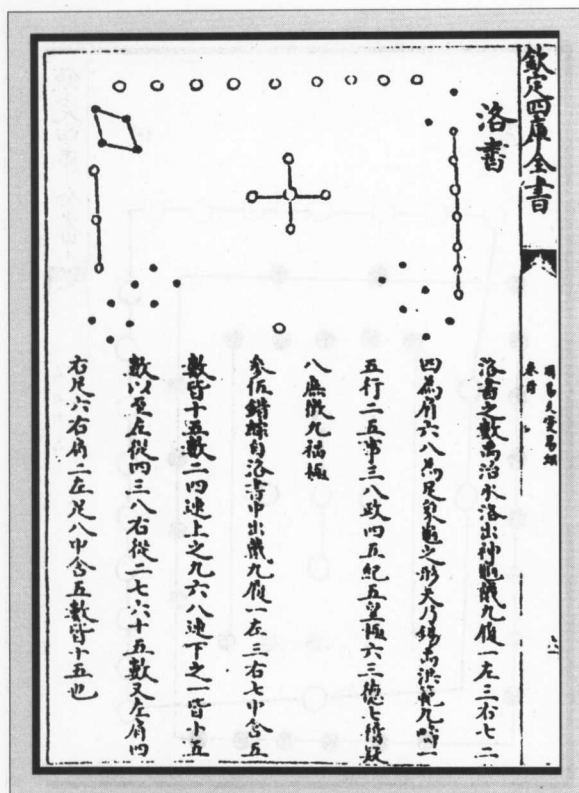 欽定四庫全書
洛書
洛書之數禹治水洛出神龜戴九履一左三右七二
四為肩六八為足象龜之形天乃錫禹洪範九疇一
五行二五事三八政四五紀五皇極六三德七稽疑
八庶徵九福極
參伍錯綜自洛書中出戴九履一左三右七中含五
數皆十五數二四連上之九六八連下之一皆十五
數以至左從四三八右從二七六十五數又左肩四
右足六右肩二左足八中含五數皆十五也